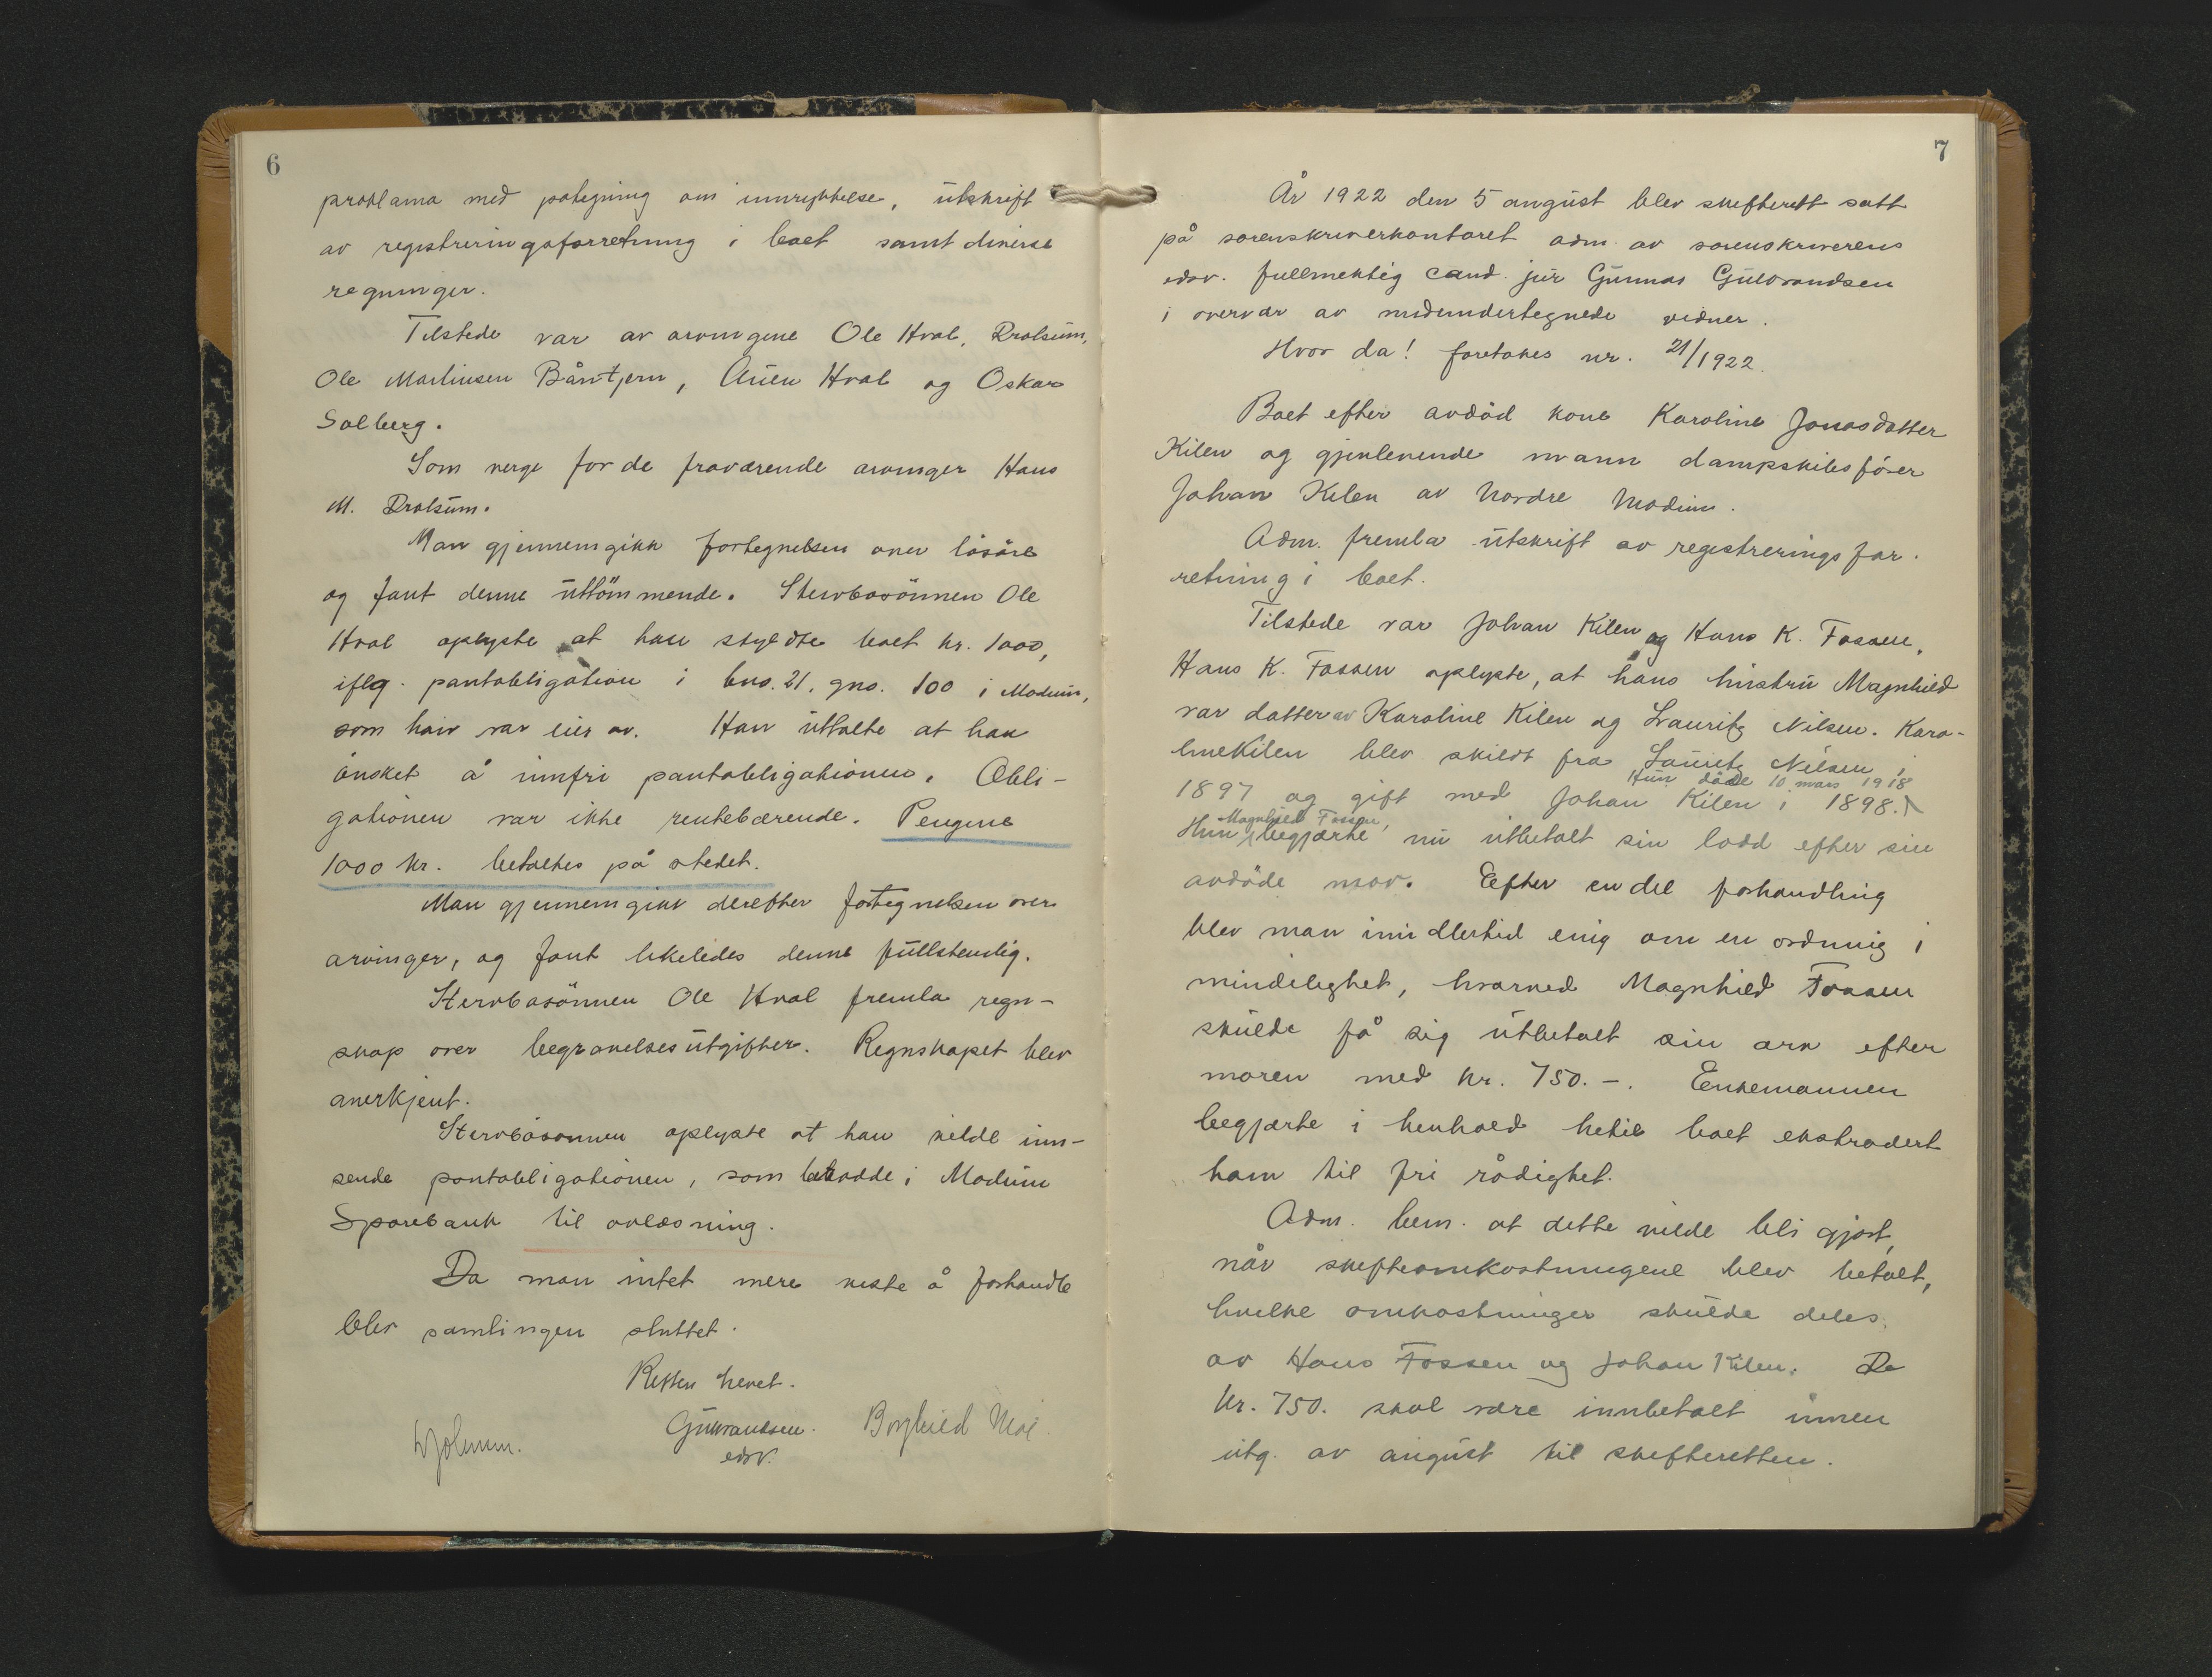 6
proklama med påtegning om innrykkelse, utskrift
av registreringsforretning i boet samt diverse
regninger.
Tilstede var av arvingene Ole Hval, Drolsum,
Ole Martinsen Båntjern, Auen Hval og Oskar
Solberg.
Som verge for de fraværende arvinger Hans
M. Drolsum.
Man gjennemgikk fortegnelsen over løsøre
og fant denne uttømmende. Stervbosønnen Ole
Hval oplyste at han skyldte boet kr. 1000,
iflg. pantobligation i bno. 21, gno. 100 i Modum,
som han var eier av. Han uttalte at han
ønsket å innfri pantobligationen. Obli-
gationen var ikke rentebærende. Pengene
1000 kr. betaltes på stedet.
Man gjennemgikk derefter fortegnelsen over
arvinger, og fant likeledes denne fullstendig.
Stervbosønnen Ole Hval fremla regn-
skap over begravelsesutgifter. Regnskapet blev
anerkjent.
Stervbosønnen oplyste at han vilde inn-
sende pantobligationen, som berodde i Modum
Sparebank til avlæsning.
Da man intet mere visste å forhandle
blev samlingen sluttet.
Retten hevet.
Gulbrandsen. Borghild Moe
edsv.
7
År 1922 den 5 august blev skifterett satt
på sorenskriverkontoret adm. av sorenskriverens
edsv. fullmektig cand. jur Gunnar Gulbrandsen
i overvær av medundertegnede vidner.
Hvor da! foretokes nr. 21/1922.
Boet efter avdød kone Karoline Jonasdatter
Kilen og gjenlevende mann dampskibsfører
Johan Kilen av Nordre Modum.
Adm. fremla utskrift av registreringsfor-
retning i boet.
Tilstede var Johan Kilen og Hans K. Fossen.
Hans K. Fossen oplyste, at hans hustru Magnhild
var datter av Karoline Kilen og Lauritz Nilsen. Karo-
line Kilen blev skildt fra Lauritz Nilsen i
Hun døde 10 mars 1918
1897 og gift med Johan Kilen i 1898.
Magnhild Fossen,
Hun begjærte nu utbetalt sin lodd efter sin
avdøde mor. Efter en del forhandling
blev man imidlertid enig om en ordning i
mindelighet, hvorved Magnhild Fossen
skulde få sig utbetalt sin arv efter
moren med kr. 750.-. Enkemannen
begjærte i henhold hertil boet ekstradert
ham til fri rådighet.
Adm. bem. at dette vilde bli gjort,
når skifteomkostningene blev betalt,
hvilke omkostninger skulde deles
av Hans Fossen og Johan Kilen. De
kr. 750. skal være innbetalt innen
utg. av august til skifteretten.